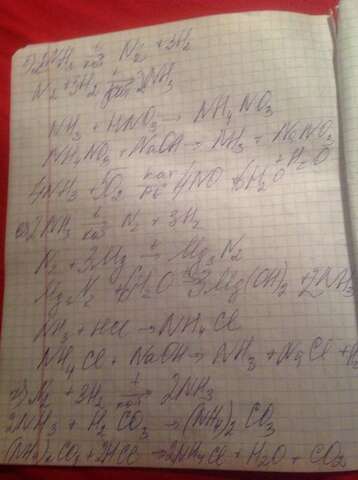 б) 2NH₃ ⇄ N₂ + 3H₂
N₂ + 3H₂ ⇄ 2NH₃
NH₃ + HNO₃ → NH₄NO₃
NH₄NO₃ + NaOH → NH₃ + NaNO₃ + H₂O
4NH₃ + 5O₂ → 4NO + 6H₂O
в) 2NH₃ ⇄ N₂ + 3H₂
N₂ + 3Mg →t Mg₃N₂
Mg₃N₂ + 6H₂O → 3Mg(OH)₂ + 2NH₃
NH₃ + HCl → NH₄Cl
NH₄Cl + NaOH → NH₃ + NaCl +
г) N₂ + 3H₂ ⇄ 2NH₃
2NH₃ + H₂CO₃ → (NH₄)₂CO₃
(NH₄)₂CO₃ + 2HCl → 2NH₄Cl + H₂O + CO₂